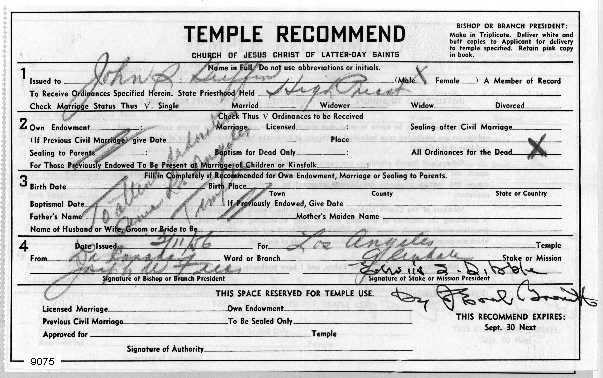 TEMPLE RECOMMEND
CHURCH OF JESUS CHRIST OF LATTER-DAY SAINTS
BISHOP OR BRANCH PRESIDENT:
Make in Triplicate. Deliver white and
buff copies to Applicant for delivery
to temple specified. Retain pink copy
in book.
Name in Full. Do not use abbreviations or initials.
1 Issued to John R. Griffin (Male X Female ) A Member of Record
To Receive Ordinances Specified Herein. State Priesthood Held High Priest
Check Marriage Status Thus V. Single Married Widower Widow Divorced
Check Thus V Ordinances to be Received
2 Own Endowment : Marriage, Licensed : Sealing after Civil Marriage
(If Previous Civil Marriage, give Date Place )
Sealing to Parents : Baptism for Dead Only : All Ordinances for the Dead X
For Those Previously Endowed To Be Present at Marriage of Children or Kinsfolk
Fill in Completely if Recommended for Own Endowment, Marriage or Sealing to Parents.
3 Birth Date Birth Place
Town County State or Country
Baptismal Date If Previously Endowed, Give Date
Father's Name Mother's Maiden Name
Name of Husband or Wife, Groom or Bride to Be
To attend
Los Angeles
Temple
4 Date Issued 3/11/56 For Los Angeles Temple
From La Canada Ward or Branch Glendale Stake or Mission
Joseph W.
Edwin S. Dibble
Signature of Bishop or Branch President Signature of Stake or Mission President
By
THIS SPACE RESERVED FOR TEMPLE USE.
Licensed Marriage Own Endowment
Previous Civil Marriage To Be Sealed Only
Approved for Temple
Signature of Authority
THIS RECOMMEND EXPIRES:
Sept. 30 Next
9075